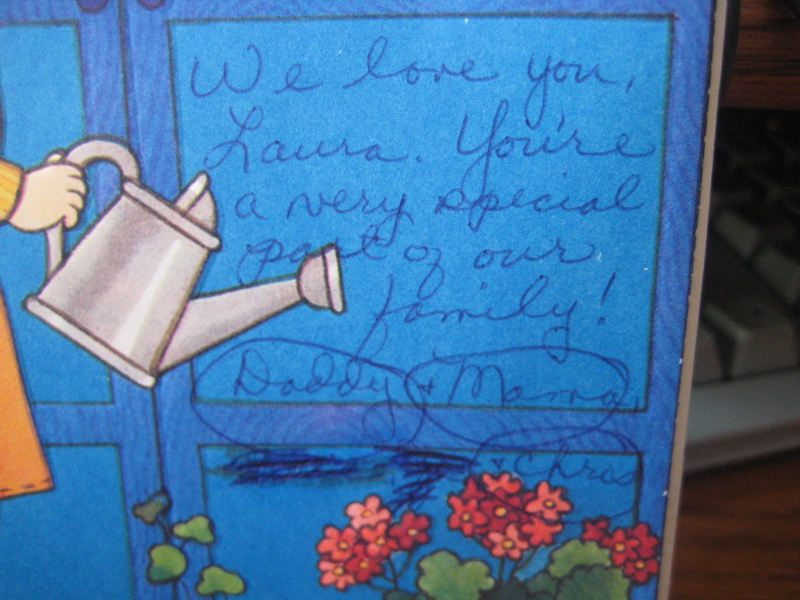 We love you,
Laura. You're
a very special
part of our
family!
Daddy + Mama,
+ Chris